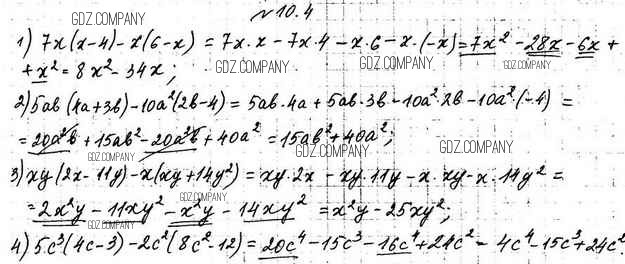 №10.4
GDZ.COMPANY
1) 7x(x-4)-x(6-x) = 7x·x-7x·4-x·6-x·(-x)=7x²-28x-6x+
+x²=8x²-34x;
GDZ.COMPANY GDZ.COMPANY GDZ.COMPANY
2) 5ab(4a+3b)-10a²(2b-4)=5ab·4a+5ab·3b-10a²·2b-10a²·(-4) =
=20a²b+15ab²-20a²b+40a²=15ab²+40a²;
GDZ.COMPANY GDZ.COMPANY GDZ.COMPANY
3) xy(2x-11y)-x(xy+14y²)=xy·2x-xy·11y-x·xy-x·14y²=
=2x²y-11xy²-x²y-14xy²=x²y-25xy²;
GDZ.COMPANY GDZ.COMPANY
4) 5c³(4c-3)-2c²(8c²-12)=20c⁴-15c³-16c⁴+24c²=4c⁴-15c³+24c²
GDZ.COMPANY GDZ.COMPANY